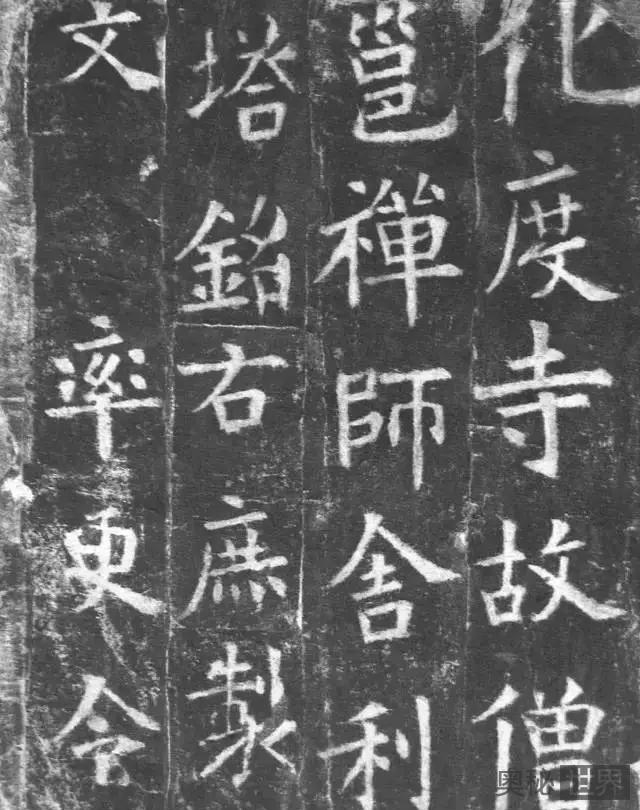 化度寺故僧
邕禪師舍利
塔銘右庶製
文率更令
奥秘世界